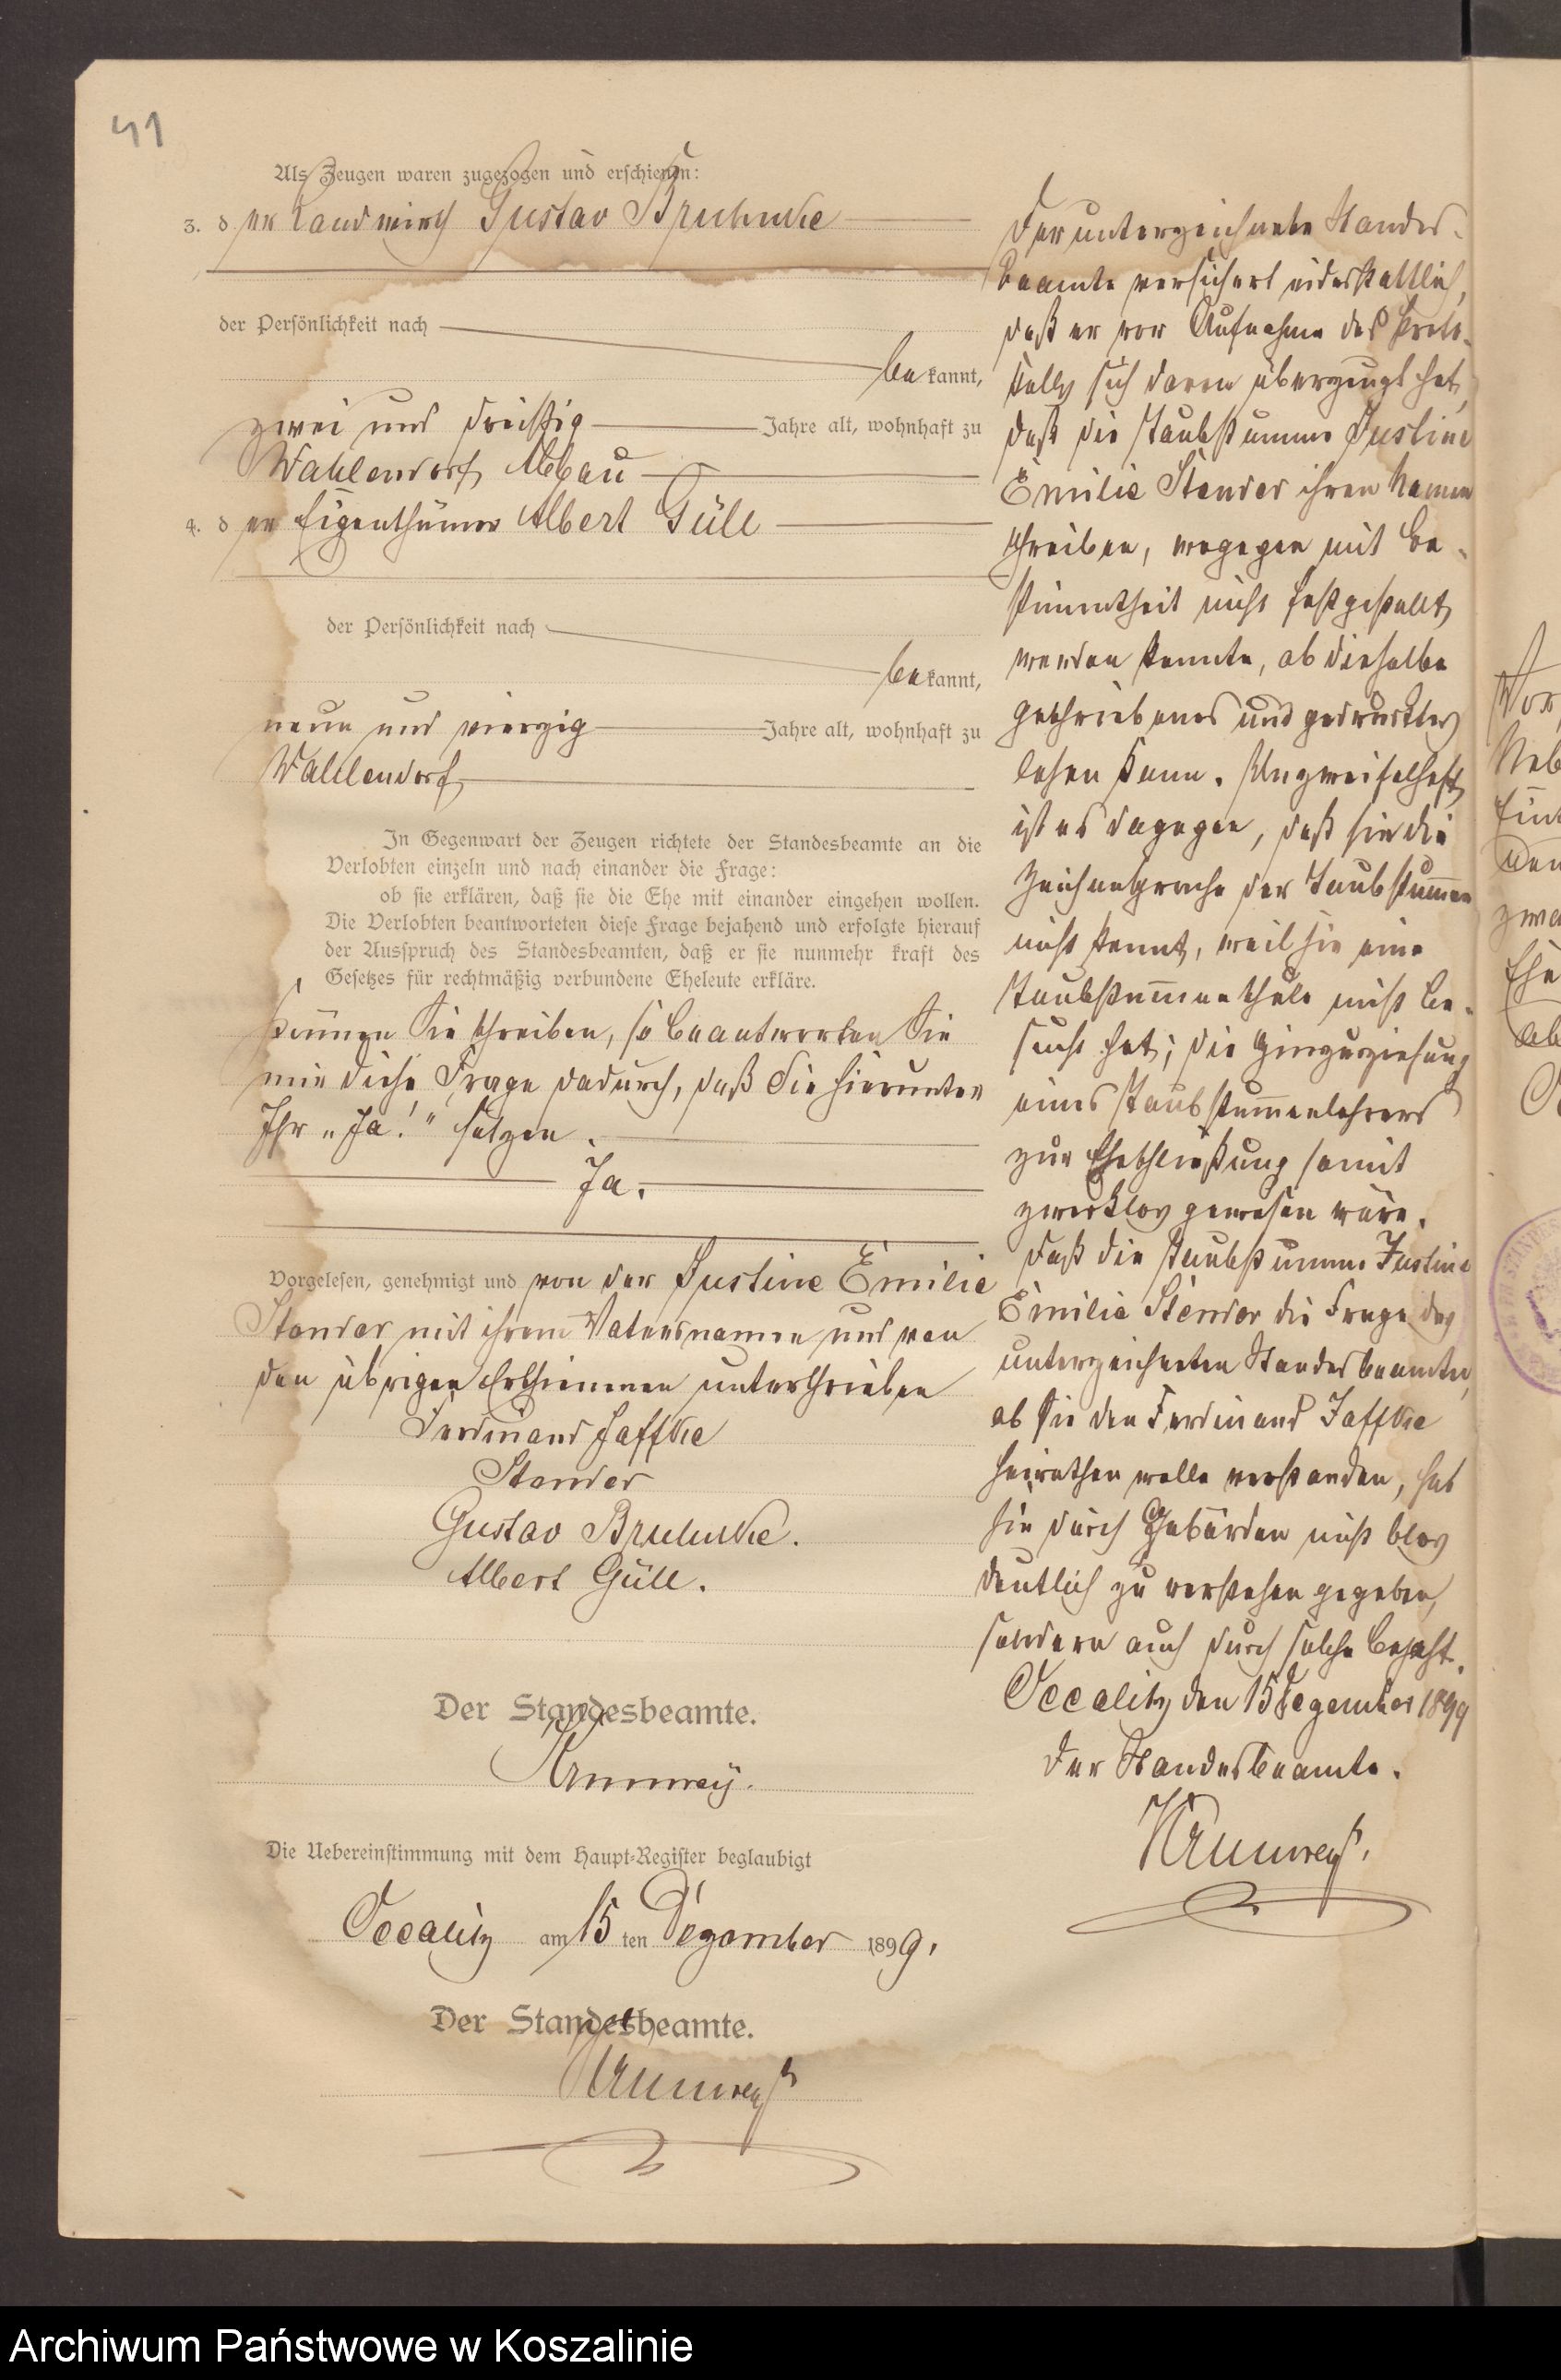 41
Als Zeugen waren zugezogen und erschienen:
3. der Landwirth Gustav Bruhnke
der Persönlichkeit nach
bekannt,
zwei und dreißig Jahre alt, wohnhaft zu
Wahlendorf Abbau
4. der Eigenthümer Albert Güll
der Persönlichkeit nach
bekannt,
neun und vierzig Jahre alt, wohnhaft zu
Wahlendorf
In Gegenwart der Zeugen richtete der Standesbeamte an die
Verlobten einzeln und nach einander die Frage:
ob sie erklären, daß sie die Ehe mit einander eingehen wollen.
Die Verlobten beantworteten diese Frage bejahend und erfolgte hierauf
der Ausspruch des Standesbeamten, daß er sie nunmehr kraft des
Gesetzes für rechtmäßig verbundene Eheleute erkläre.
Können Sie schreiben, so beantworten Sie
mir diese Frage dadurch, daß Sie hierunter
Ihr „Ja!“ setzen.
Ja.
Vorgelesen, genehmigt und von der Justine Emilie
Stender mit ihrem Vatersnamen und von
den übrigen Erschienenen unterschrieben
Ferdinand Jaffke
Stender
Gustav Bruhnke.
Albert Güll.
Der Standesbeamte.
Krumrey.
Die Uebereinstimmung mit dem Haupt-Register beglaubigt
Occalitz am 15ten Dezember 1899.
Der Standesbeamte.
Krumrey
Der unterzeichnete Standes-
beamte versichert eidesstattlich,
daß er vor Aufnahme des Proto-
kolls sich davon überzeugt hat,
daß die taubstumme Justine
Emilie Stender ihren Namen
schreiben, wogegen mit Be-
stimmtheit nicht festgestellt
werden konnte, ob dieselbe
geschriebenes und gedrucktes
lesen kann. Unzweifelhaft
ist es dagegen, daß sie die
Zeichensprache der Taubstummen
nicht kennt, weil sie eine
Taubstummenschule nicht be-
sucht hat; die Hinzuziehung
eines Taubstummenlehrers
zur Eheschließung somit
zwecklos gewesen wäre.
Daß die taubstumme Justine
Emilie Stender die Frage des
unterzeichneten Standesbeamten,
ob sie den Ferdinand Jaffke
heirathen wolle verstanden, hat
sie durch Gebärden nicht blos
deutlich zu verstehen gegeben,
sondern auch durch solche bejaht.
Occalitz den 15 Dezember 1899
Der Standesbeamte.
Krumrey.
Archiwum Państwowe w Koszalinie